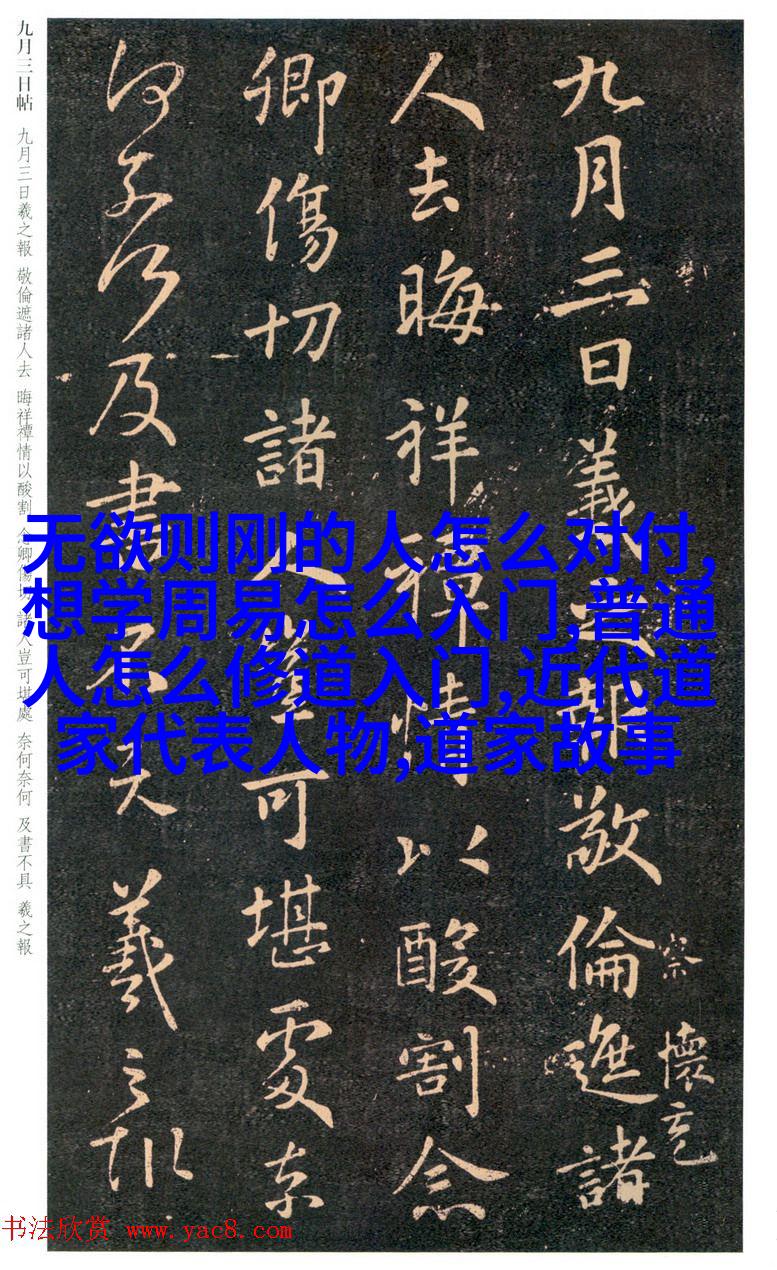 九月三日羲之報敬倫遮諸
察 懷充
人去晦祥禫情以酸割念
卿傷切諸人豈可堪處奈
何奈何及書不具羲之報
九月三日帖 九月三日羲之報 敬倫遮諸人去 晦祥禫情以酸割 念卿傷切 諸人豈可堪處 奈何奈何 及書不具 羲之報
无欲则刚的人怎么对付,
想学周易怎么入门,普通
人怎么修道入门,近代道
家代表人物,道家故事
书法欣赏 www.yac8.com